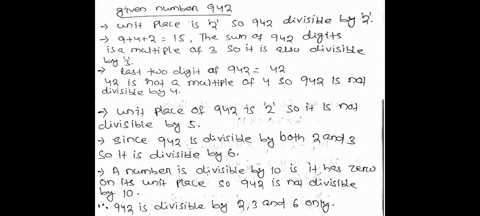 given number 942
→ unit place is '2' so 942 divisible by '2'.
→ 9+4+2 = 15, The sum of 942 digits
is a multiple of 3 so it is also divisible
by '3'.
→ last two digit of 942 = 42
42 is not a multiple of 4 so 942 is not
divisible by 4.
→ unit place of 942 is '2' so it is not
divisible by 5.
→ since 942 is divisible by both 2 and 3
so it is divisible by 6.
→ A number is divisible by 10 is it has zero
on its unit place so 942 is not divisible
by 10.
∴ 942 is divisible by 2, 3 and 6 only.